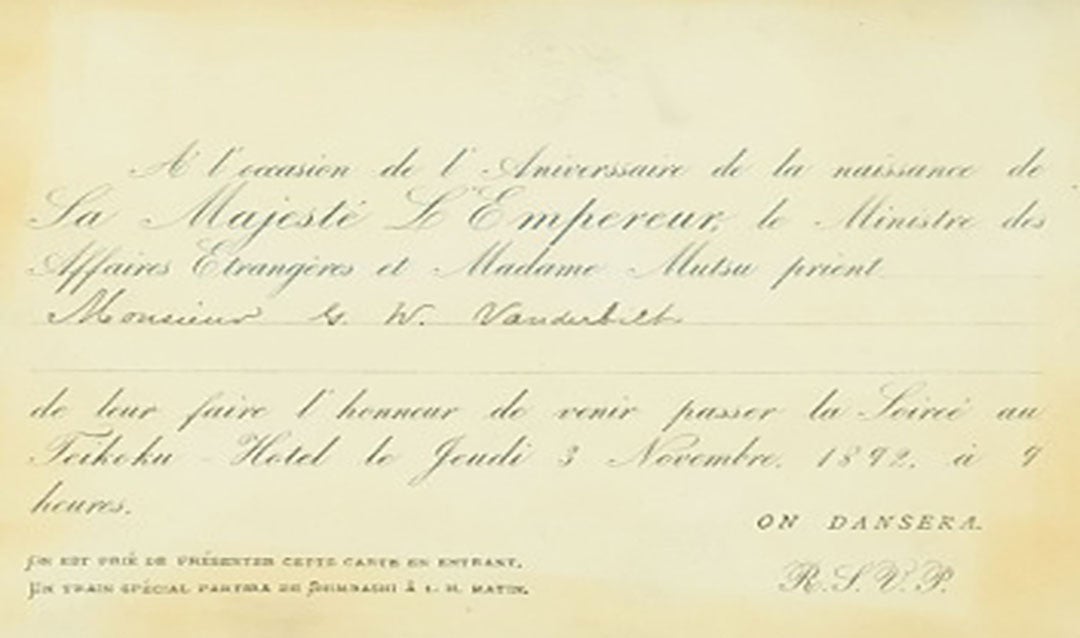 A l'occasion de l'Aniverssaire de la naissance de
Sa Majesté L'Empereur, le Ministre des
Affaires Etrangères et Madame Mutsu prient
Monsieur G. W. Vanderbilt
de leur faire l'honneur de venir passer la Soireé au
Teikoku-Hotel le Jeudi 3 Novembre. 1892. à 9
heures.
ON DANSERA.
ON EST PRIÉ DE PRÉSENTER CETTE CARTE EN ENTRANT.
UN TRAIN SPÉCIAL PARTIRA DE SHIMBASHI À 1. H. MATIN.
R.S.V.P.